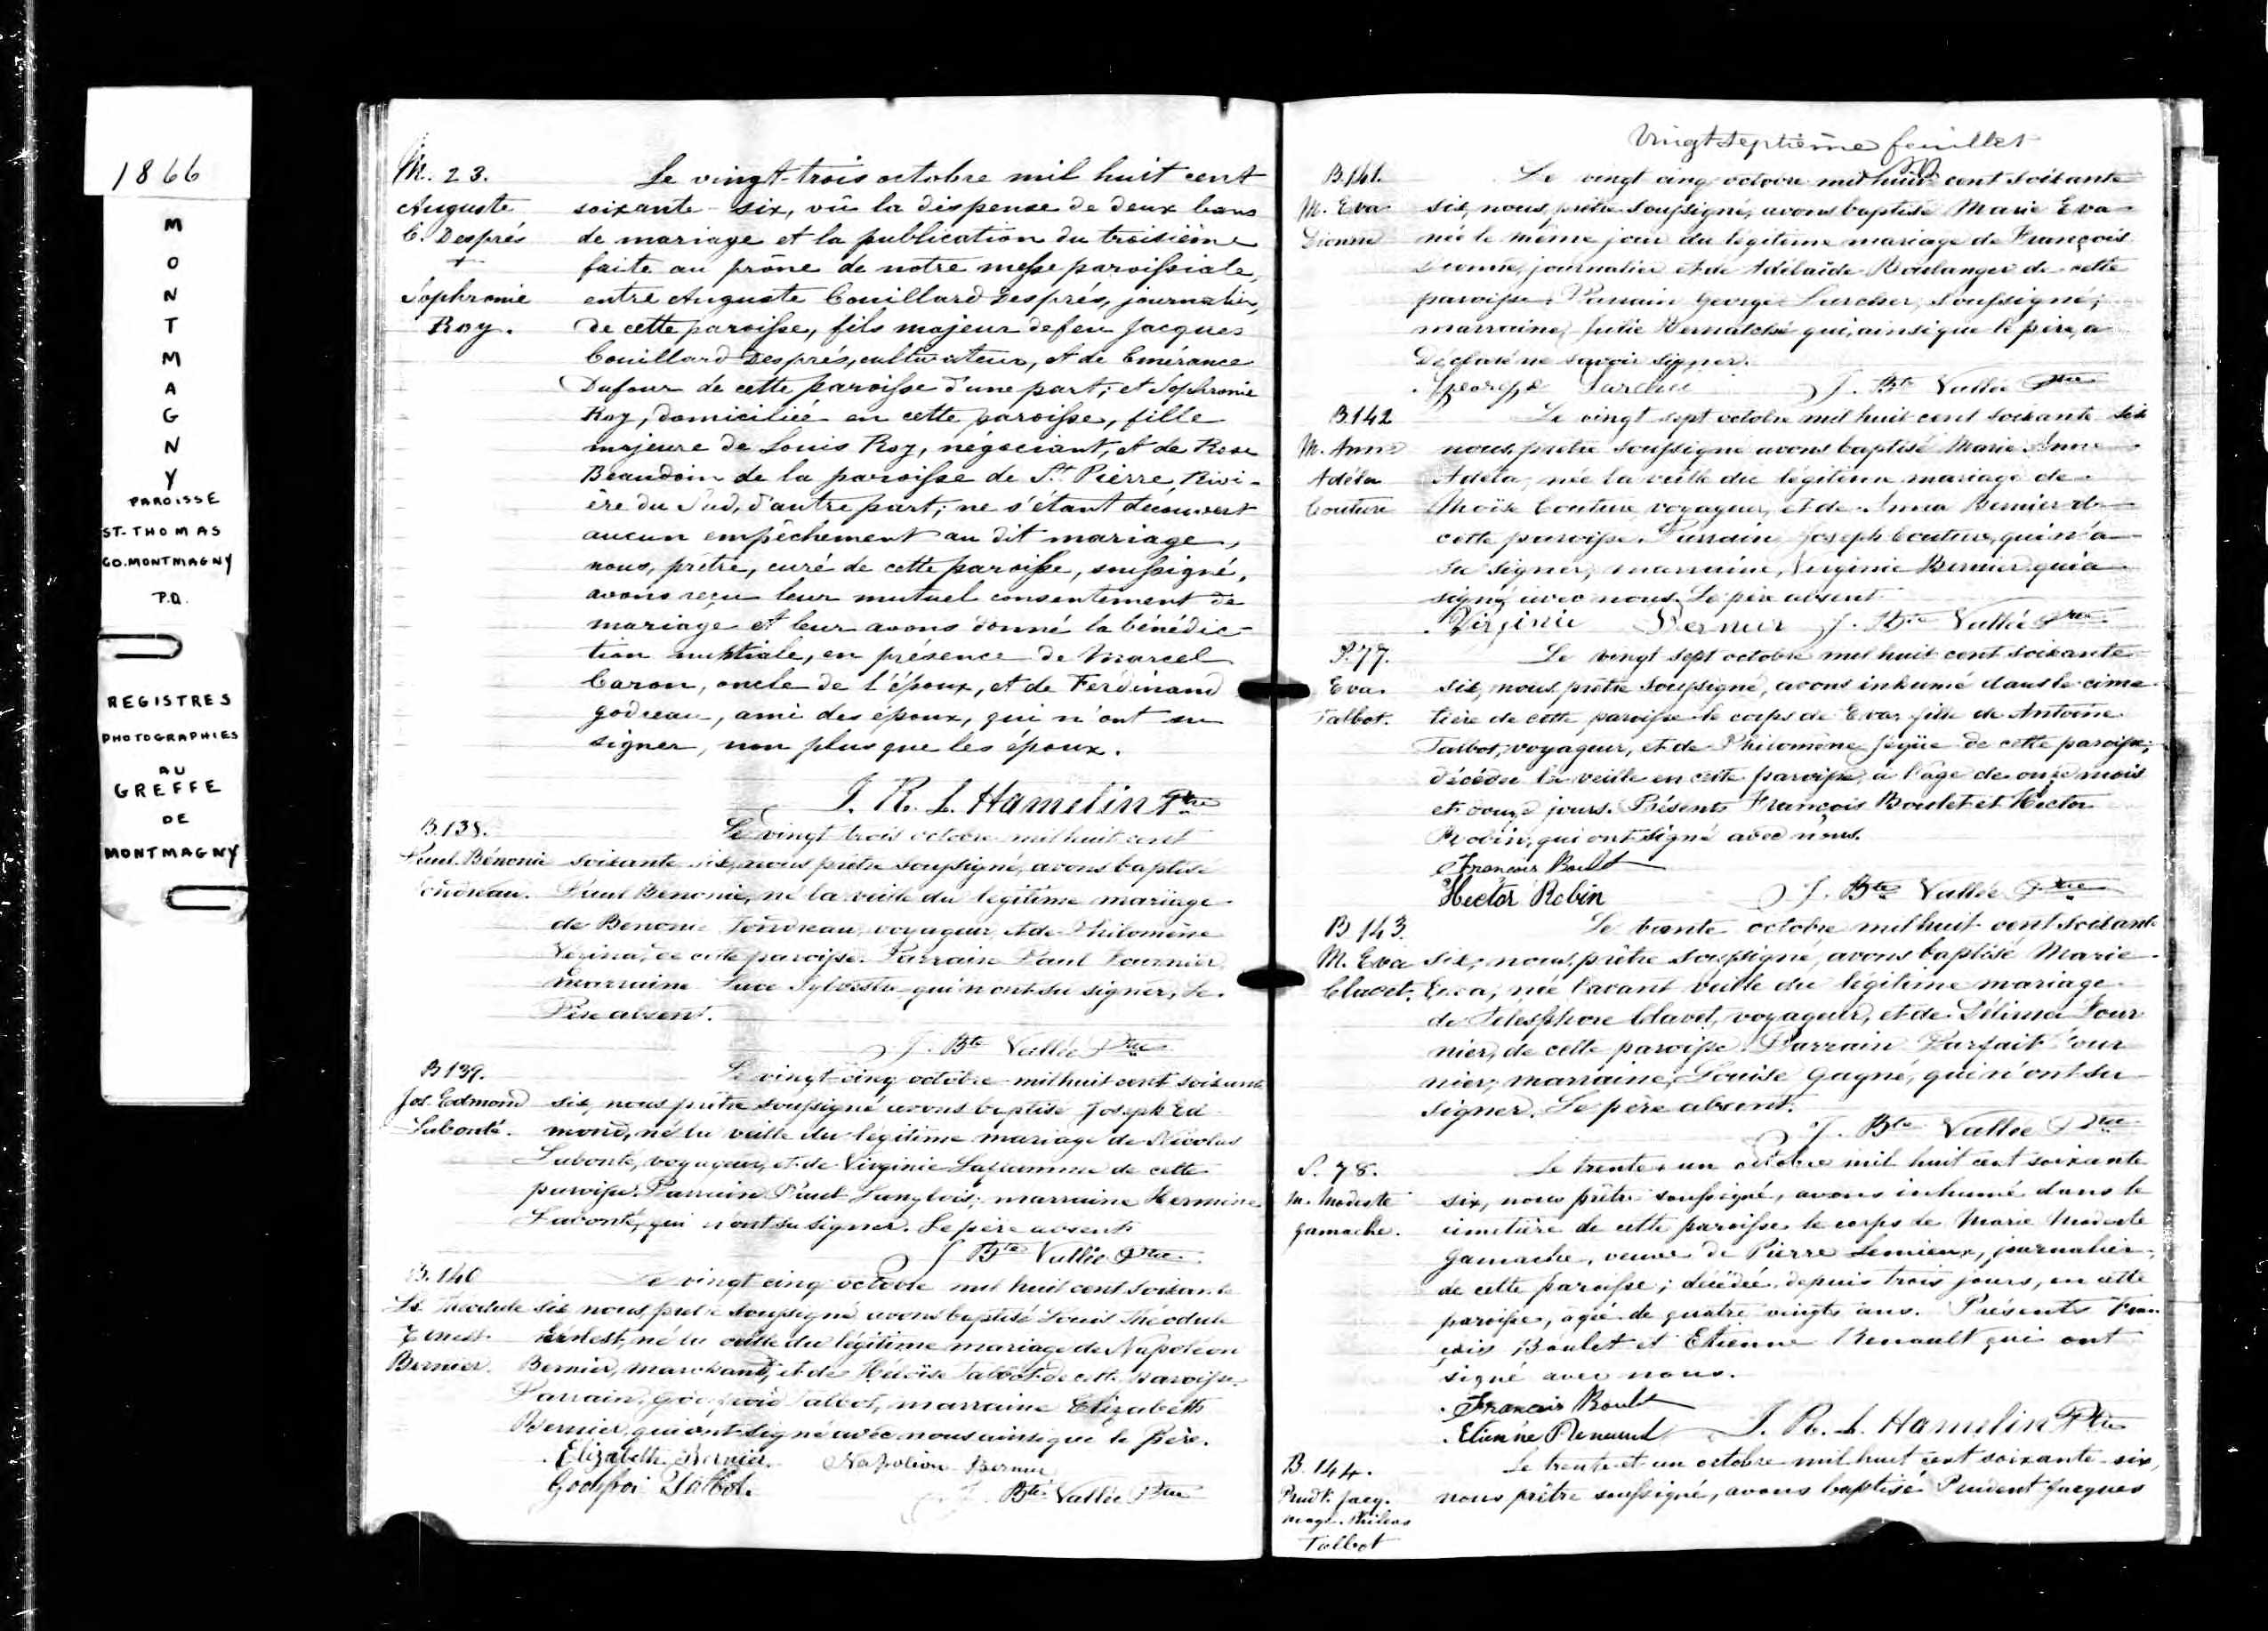 1866
M
O
N
T
M
A
G
N
Y
PAROISSE
ST-THOMAS
CO. MONTMAGNY
P.Q.
REGISTRES
PHOTOGRAPHIES
AU
GREFFE
DE
MONTMAGNY
M. 23.
Auguste
C. Després
+
Sophronie
Roy.
Le vingt-trois octobre mil huit cent
soixante-six, vû la dispense de deux bans
de mariage et la publication du troisième
faite au prône de notre messe paroissiale,
entre Auguste Couillard Després, journalier,
de cette paroisse, fils majeur de feu Jacques
Couillard Després, cultivateur, et de Emérance
Dufour de cette paroisse d'une part; et Sophronie
Roy, domiciliée en cette paroisse, fille
majeure de Louis Roy, négociant, et de Rose
Beaudoin de la paroisse de St. Pierre, Rivi-
ère du Sud, d'autre part; ne s'étant découvert
aucun empêchement au dit mariage,
nous, prêtre, curé de cette paroisse, soussigné,
avons reçu leur mutuel consentement de
mariage et leur avons donné la bénédic-
tion nuptiale, en présence de Marcel
Caron, oncle de l'époux, et de Ferdinand
Godreau, ami des époux, qui n'ont su
signer, non plus que les époux.
J. R. L. Hamelin Ptre
B. 138.
Paul Bénonie
Le vingt trois octobre mil huit cent
soixante six, nous prêtre soussigné, avons baptisé
Paul Benonie, né la veille du légitime mariage
de Benonie voyageur et de Philomène
Vezina, de cette paroisse. Parrain Paul Fournier,
marraine Luce Sylvestre qui n'ont su signer, Le
Père absent.
J. Bte Vallée Ptre
B 139.
Jos. Edmond
Labonté.
Le vingt-cinq octobre mil huit cent soixante
six, nous prêtre soussigné avons baptisé Joseph Ed
mond, né la veille du légitime mariage de Nicolas
Labonté, voyageur, et de Virginie Laflamme de cette
paroisse. Parrain Paul Langlois; marraine Hermine
Labonté, qui n'ont su signer. Le père absent
J Bte Vallée Ptre
B. 140
Ls Théodule
Ernest
Bernier.
Le vingt cinq octobre mil huit cent soixante
six nous prêtre soussigné avons baptisé Louis Théodule
Ernest, né la veille du légitime mariage de Napoléon
Bernier, marchand, et de Héloïse Talbot de cette paroisse.
Parrain, Godfroid Talbot, marraine Elizabeth
Bernier qui ont signé avec nous ainsi que le père.
Elizabeth Bernier. Napoléon Bernier
Godfroi Talbot. J. Bte Vallée Ptre
Vingt septième feuillet
B. 141.
M. Eva
Dionne
Le vingt cinq octobre mil huit cent soixante
six, nous, prêtre soussigné, avons baptisé Marie Eva
née le même jour du légitime mariage de François
Dionne, journalier et de Adélaïde Boulanger de cette
paroisse. Parrain George soussigné;
marraine, Julie qui, ainsi que le père, a
déclaré ne savoir signer.
George J. Bte Vallée Ptre
B. 142
M. Anne
Adéla
Couture
Le vingt sept octobre mil huit cent soixante six
nous, prêtre soussigné avons baptisé Marie Anne
Adéla, née la veille du légitime mariage de
Moïse Couture, voyageur, et de Anna Bernier de
cette paroisse. Parrain Joseph Couture, qui n'a
su signer, marraine, Virginie Bernier qui a
signé avec nous. Le père absent
Virginie Bernier J. Bte Vallée Ptre
S. 77.
Eva
Talbot.
Le vingt sept octobre mil huit cent soixante
six, nous, prêtre soussigné, avons inhumé dans le cime
tière de cette paroisse le corps de Eva, fille de Antoine
Talbot, voyageur, et de Philomène de cette paroisse,
décédée la veille en cette paroisse, à l'âge de onze mois
et douze jours. Présents François Boulet et Hector
Robin, qui ont signé avec nous.
Francois Boulet
Hector Robin J. Bte Vallée Ptre
B 143.
M. Eva
Clavet.
Le trente octobre mil huit cent soixante
six, nous, prêtre soussigné, avons baptisé Marie
Eva, née l'avant veille du légitime mariage
de Télesphore Clavet, voyageur, et de Délima Four
nier, de cette paroisse. Parrain Parfait Four
nier, marraine, Louise Gagné, qui n'ont su
signer. Le père absent.
J. Bte Vallée Ptre
S. 78.
M. Modeste
Gamache.
Le trente-un octobre mil huit cent soixante
six, nous prêtre soussigné, avons inhumé dans le
cimetière de cette paroisse le corps de Marie Modeste
Gamache, veuve de Pierre Lemieux, journalier,
de cette paroisse; décédée, depuis trois jours, en cette
paroisse, agée de quatre vingts ans. Présents Fran
çois Boulet et Etienne Renault qui ont
signé avec nous.
Francois Boulet
Etienne Renaud J. R. L. Hamelin Ptre
B. 144.
Prudt. Jacq.
Talbot
Le trente-et un octobre mil huit cent soixante-six,
nous prêtre soussigné, avons baptisé Prudent Jacques